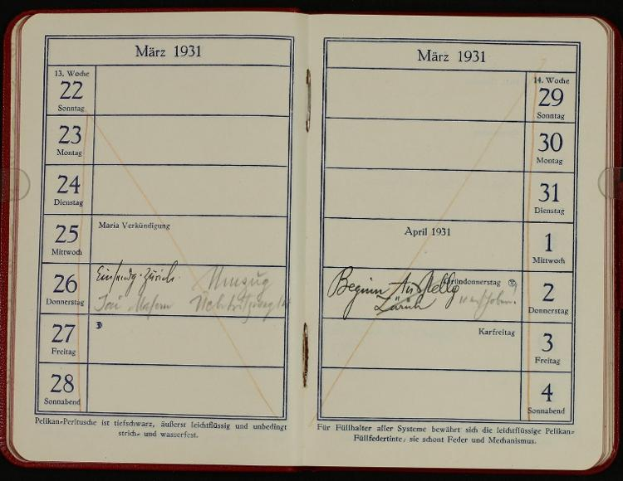 März 1931
13. Woche
22
Sonntag
23
Montag
24
Dienstag
25
Mittwoch
Maria Verkündigung
26
Donnerstag
Einsendg. Zürich Umzug
27
Freitag
28
Sonnabend
Pelikan-Perltusche ist tiefschwarz, äußerst leichtflüssig und unbedingt
strich- und wasserfest.
März 1931
14. Woche
29
Sonntag
30
Montag
31
Dienstag
April 1931
1
Mittwoch
Gründonnerstag
2
Donnerstag
Beginn Ausstellg
Zürich
Karfreitag
3
Freitag
4
Sonnabend
Für Füllhalter aller Systeme bewährt sich die leichtflüssige Pelikan-
Füllfedertinte, sie schont Feder und Mechanismus.